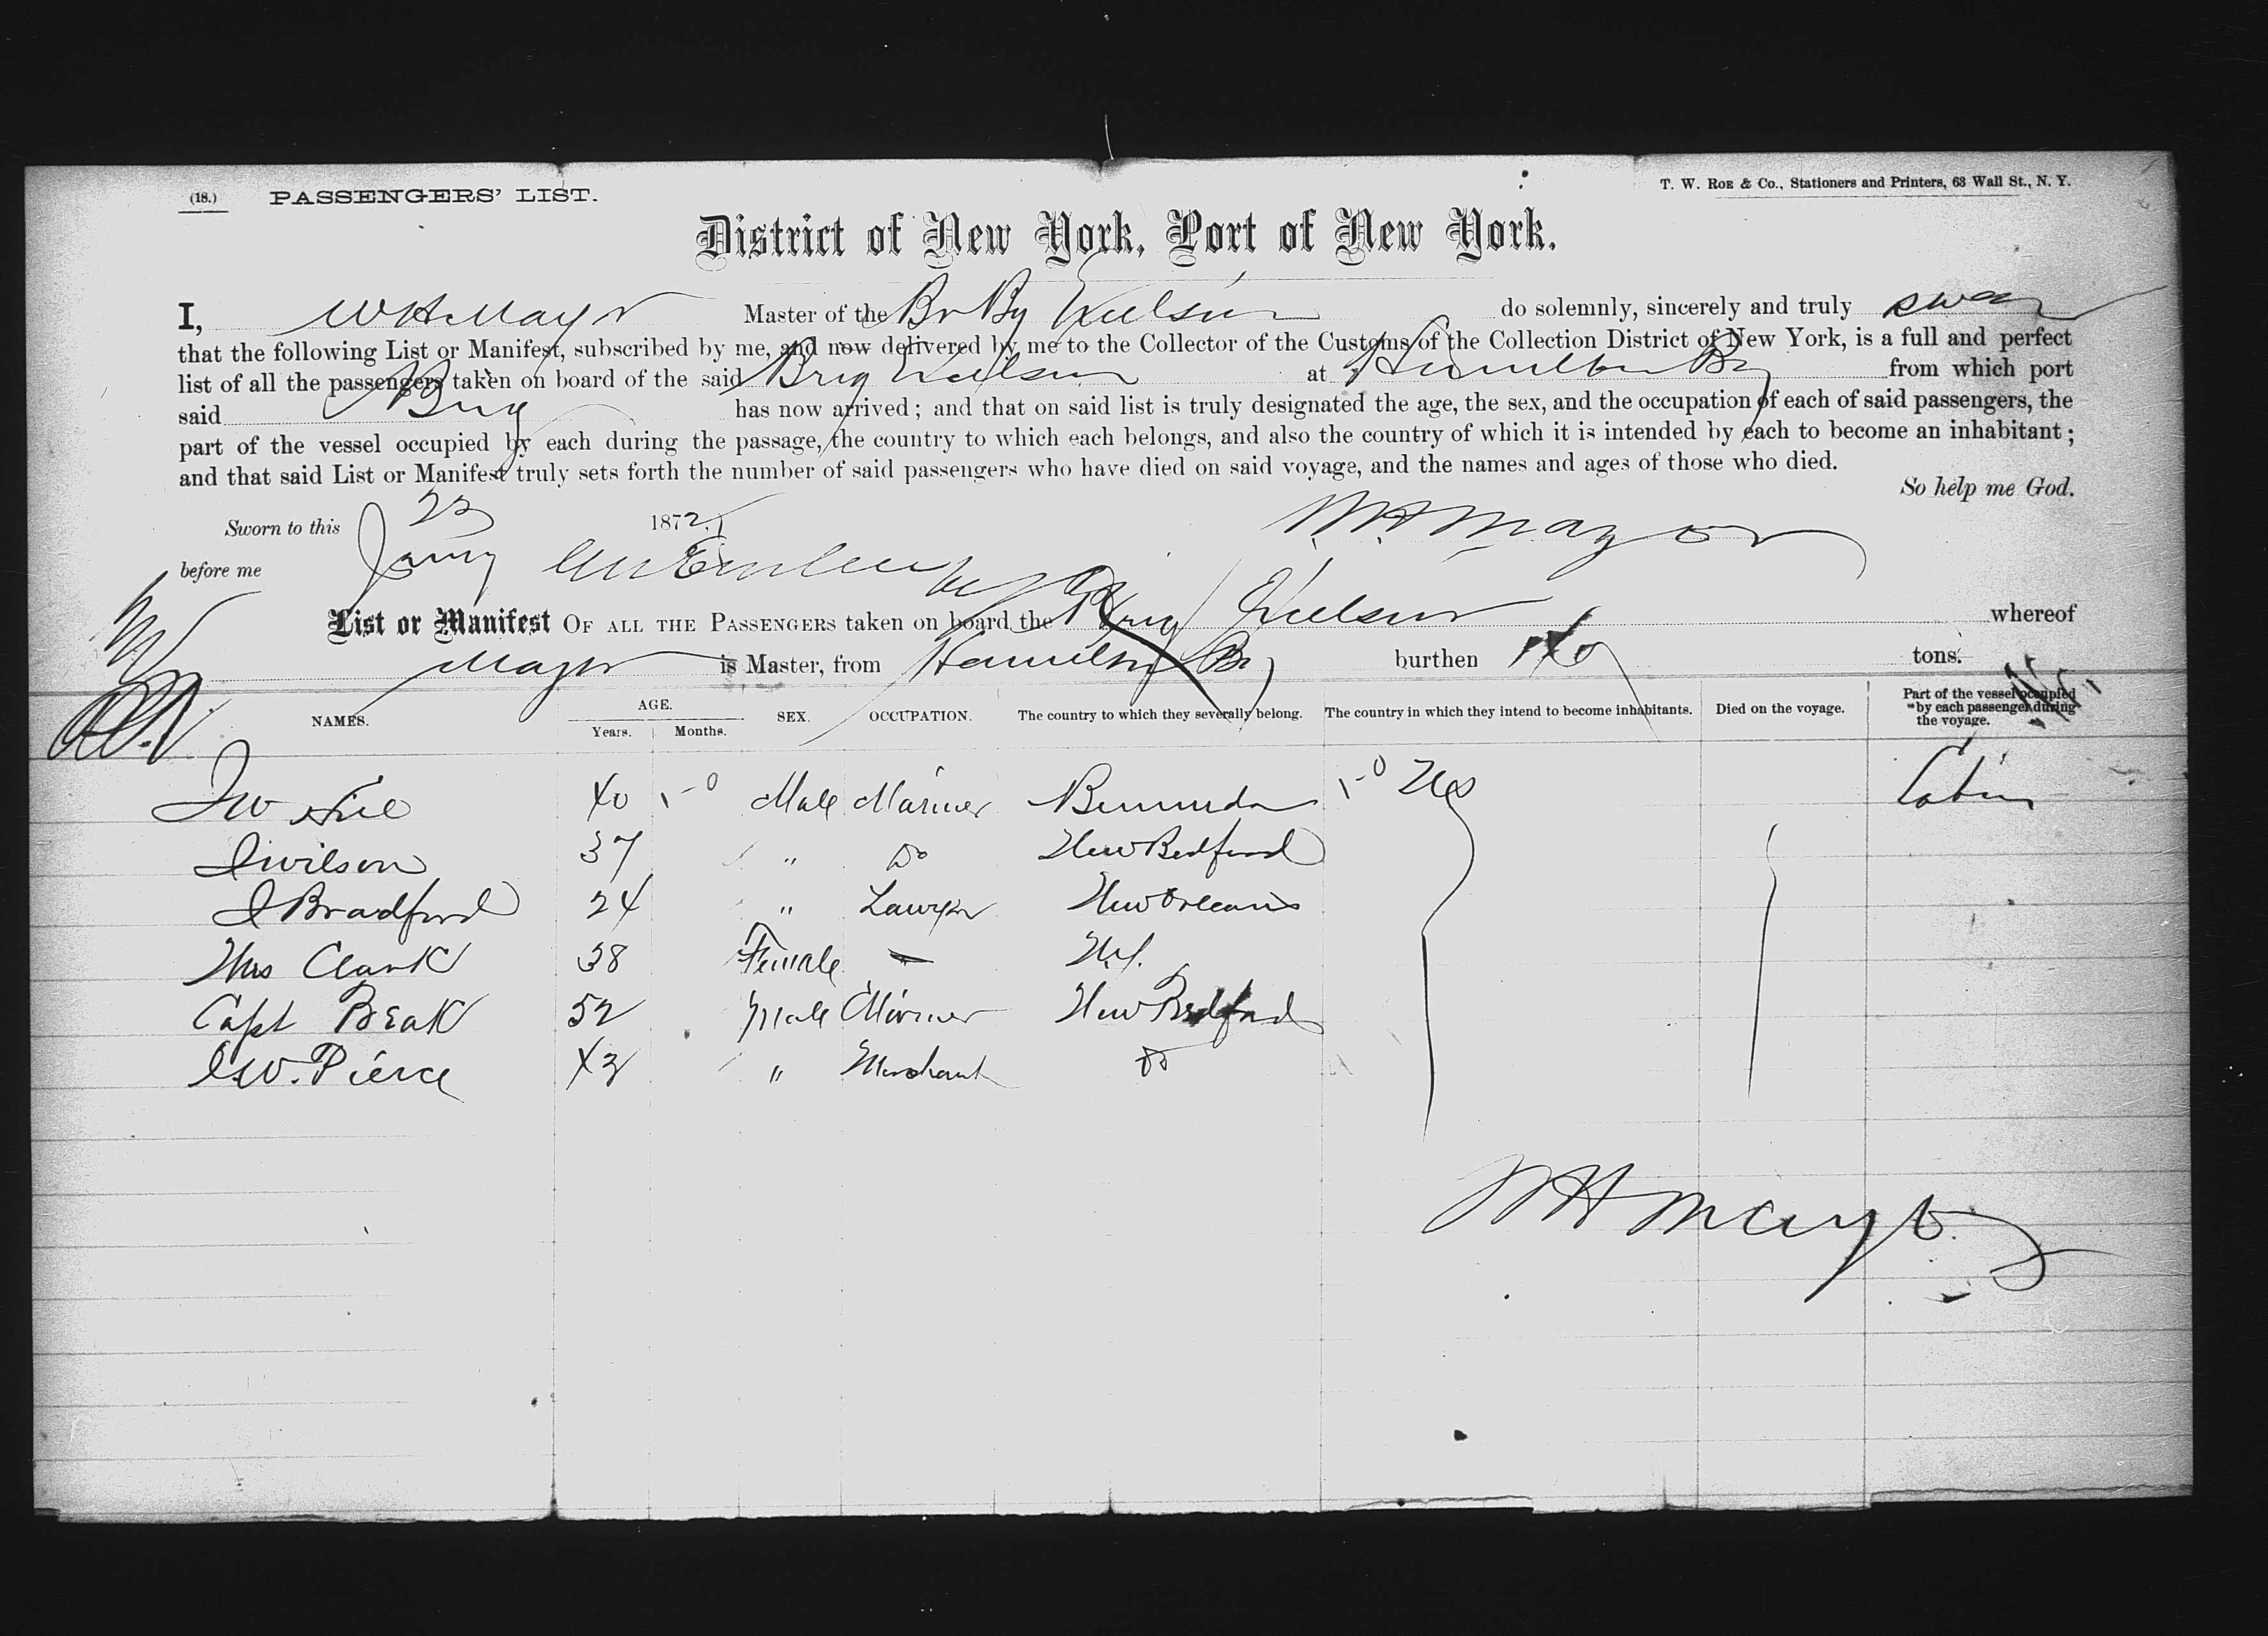 (18.) PASSENGERS' LIST. T. W. ROE & Co., Stationers and Printers, 63 Wall St., N. Y.
District of New York, Port of New York.
I, W H Mayor Master of the Br Bg do solemnly, sincerely and truly swear
that the following List or Manifest, subscribed by me, and now delivered by me to the Collector of the Customs of the Collection District of New York, is a full and perfect
list of all the passengers taken on board of the said Brig at Hamilton from which port
said Brig has now arrived; and that on said list is truly designated the age, the sex, and the occupation of each of said passengers, the
part of the vessel occupied by each during the passage, the country to which each belongs, and also the country of which it is intended by each to become an inhabitant;
and that said List or Manifest truly sets forth the number of said passengers who have died on said voyage, and the names and ages of those who died.
So help me God.
Sworn to this 23 1872, W. H Mayor
before me Jany
List or Manifest OF ALL THE PASSENGERS taken on board the Brig whereof
Mayor is Master, from Hamilton burthen tons.
NAMES. AGE. Years. Months. SEX. OCCUPATION. The country to which they severally belong. The country in which they intend to become inhabitants. Died on the voyage. Part of the vessel occupied by each passenger during the voyage.
40 Male Mariner Bermuda US Cabin
wilson 37 " Do New Bedford
Bradford 24 " Lawyer New Orleans
Mrs Clark 38 Female
Capt Beak 52 Male Mariner New Bedford
W. Pierce 43 " Merchant do
W H Mayor